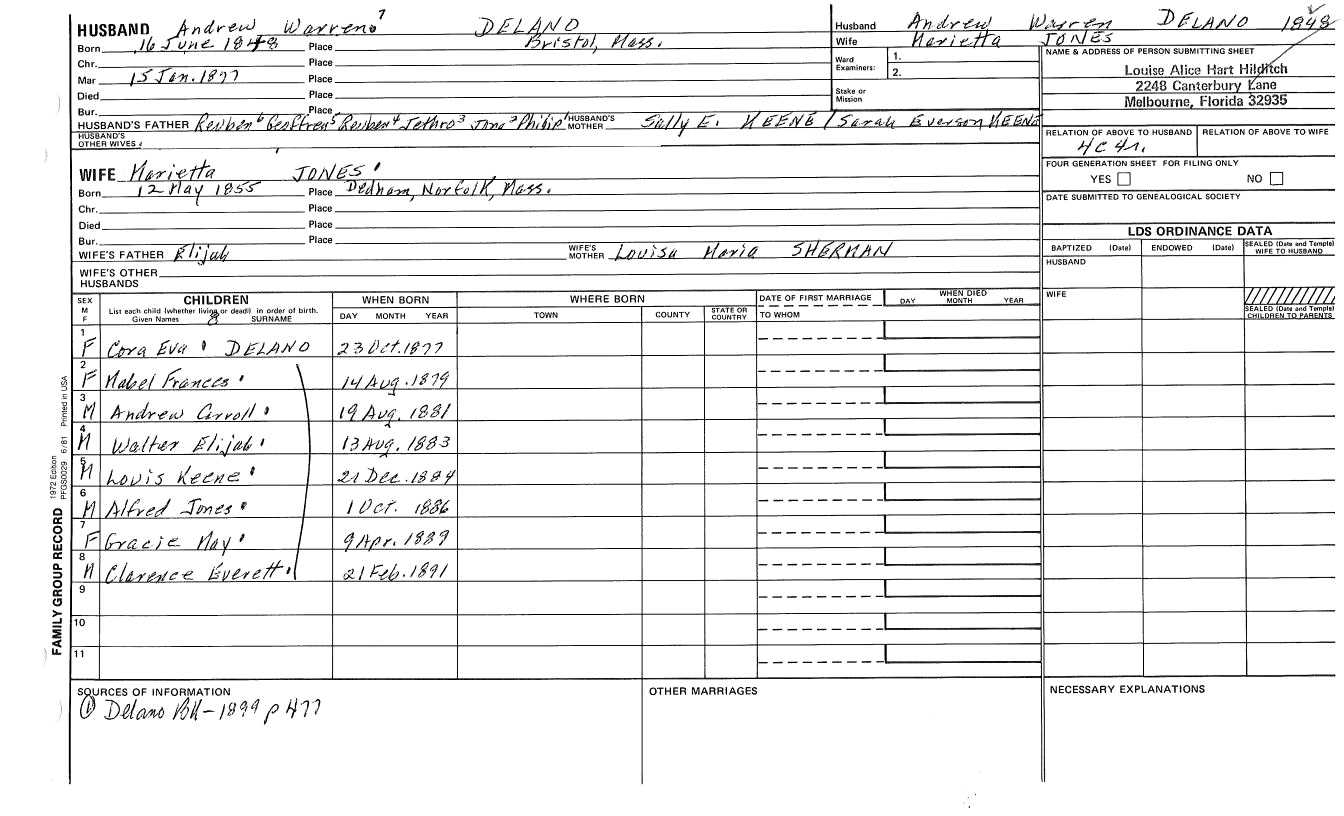 HUSBAND Andrew Warren⁷ DELANO
Born 16 June 1848 Place Bristol, Mass.
Chr. Place
Mar 15 Jan. 1877 Place
Died Place
Bur. Place
HUSBAND'S FATHER Reuben⁶ Geoffrey⁵ Reuben⁴ Jethro³ Jona² Philip¹ HUSBAND'S MOTHER Sally E. KEENE / Sarah Everson KEENE
HUSBAND'S OTHER WIVES
WIFE Marietta JONES
Born 12 May 1855 Place Dedham, Norfolk, Mass.
Chr. Place
Died Place
Bur. Place
WIFE'S FATHER Elijah WIFE'S MOTHER Louisa Maria SHERMAN
WIFE'S OTHER HUSBANDS
Husband Andrew Warren DELANO 1848
Wife Marietta JONES
Ward Examiners: 1.
2.
Stake or Mission
NAME & ADDRESS OF PERSON SUBMITTING SHEET
Louise Alice Hart Hilditch
2248 Canterbury Lane
Melbourne, Florida 32935
RELATION OF ABOVE TO HUSBAND RELATION OF ABOVE TO WIFE
4C 4r.
FOUR GENERATION SHEET FOR FILING ONLY
YES NO
DATE SUBMITTED TO GENEALOGICAL SOCIETY
LDS ORDINANCE DATA
BAPTIZED (Date) ENDOWED (Date) SEALED (Date and Temple) WIFE TO HUSBAND
HUSBAND
WIFE
SEALED (Date and Temple) CHILDREN TO PARENTS
SEX M F CHILDREN WHEN BORN WHERE BORN DATE OF FIRST MARRIAGE WHEN DIED
List each child (whether living or dead) in order of birth.
Given Names 8 SURNAME DAY MONTH YEAR TOWN COUNTY STATE OR COUNTRY TO WHOM DAY MONTH YEAR
1 F Cora Eva DELANO 23 Oct. 1877
2 F Mabel Frances 14 Aug. 1879
3 M Andrew Carroll 19 Aug. 1881
4 M Walter Elijah 13 Aug. 1883
5 M Louis Keene 21 Dec. 1884
6 M Alfred Jones 1 Oct. 1886
7 F Gracie May 9 Apr. 1889
8 M Clarence Everett 21 Feb. 1891
9
10
11
SOURCES OF INFORMATION
① Delano BK - 1899 p 477
OTHER MARRIAGES
NECESSARY EXPLANATIONS
FAMILY GROUP RECORD 1972 Edition PFGS0029 6/81 Printed in USA